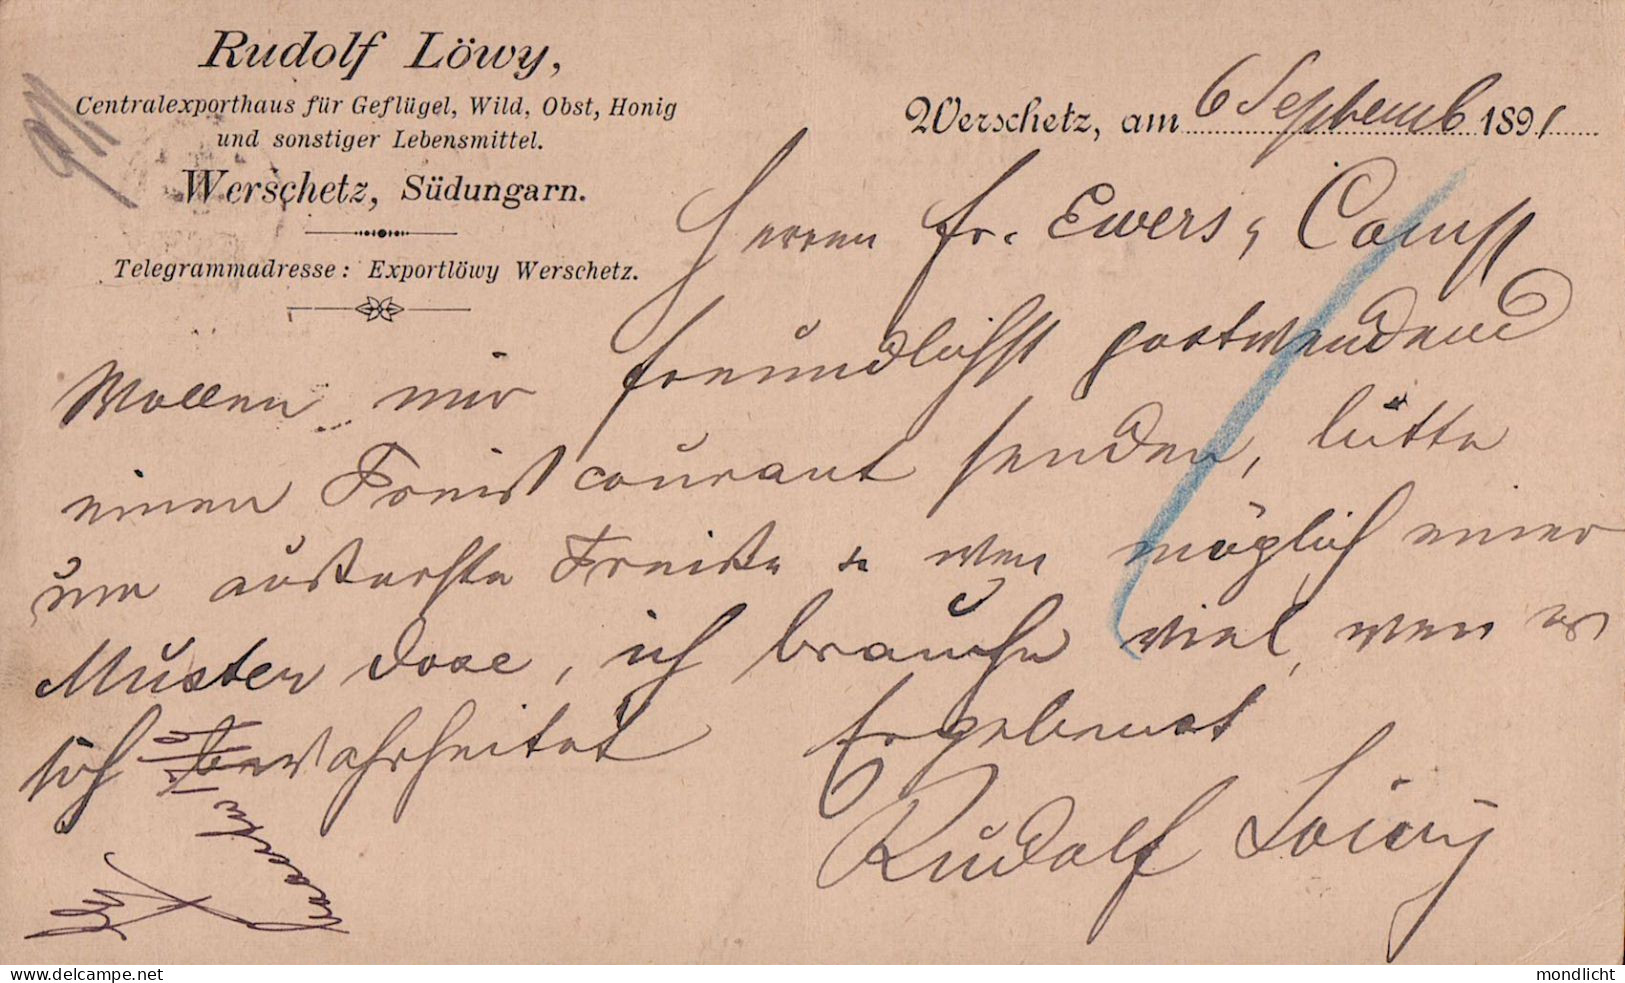 Rudolf Löwy,
Centralexporthaus für Geflügel, Wild, Obst, Honig
und sonstiger Lebensmittel.
Werschetz, Südungarn.
Telegrammadresse: Exportlöwy Werschetz.
Werschetz, am 6 Septemb 1891
Herren Fr. Ewers, Comp
Wollen mir freundlichst postwendend
einen Preiscourant senden, bitte
um äusterste Preise & wen möglich einer
Muster dose, ich brauche viel, wen es
sich bewahrheitet Ergebenst
Rudolf Löwy
delcampe.net
mondlicht